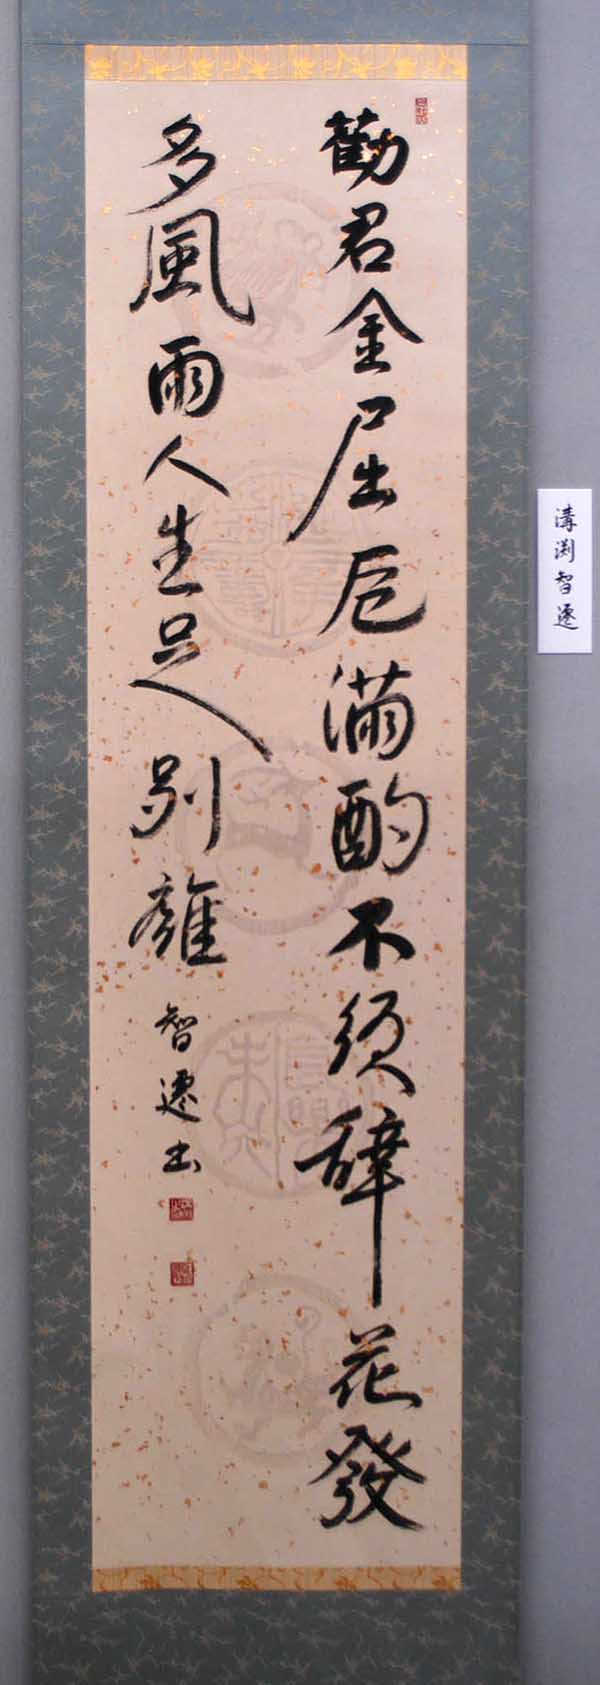 勸君金屈卮滿酌不須辭花發
多風雨人生足別離
智遷書
溝渕智遷